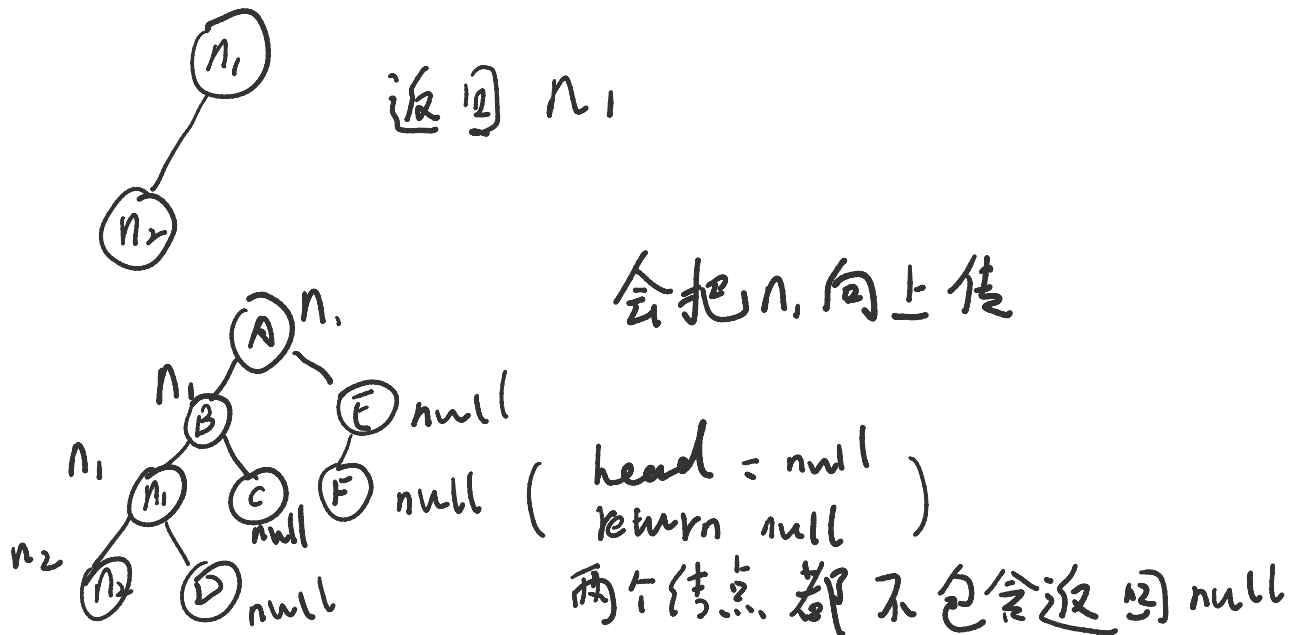 n₁
返回 n₁
n₂
会把n₁向上传
A n₁
n₁
B
E null
n₁
n₁
C
null
F null
( head = null
return null )
n₂
n₂
D null
两个结点都不包含返回null